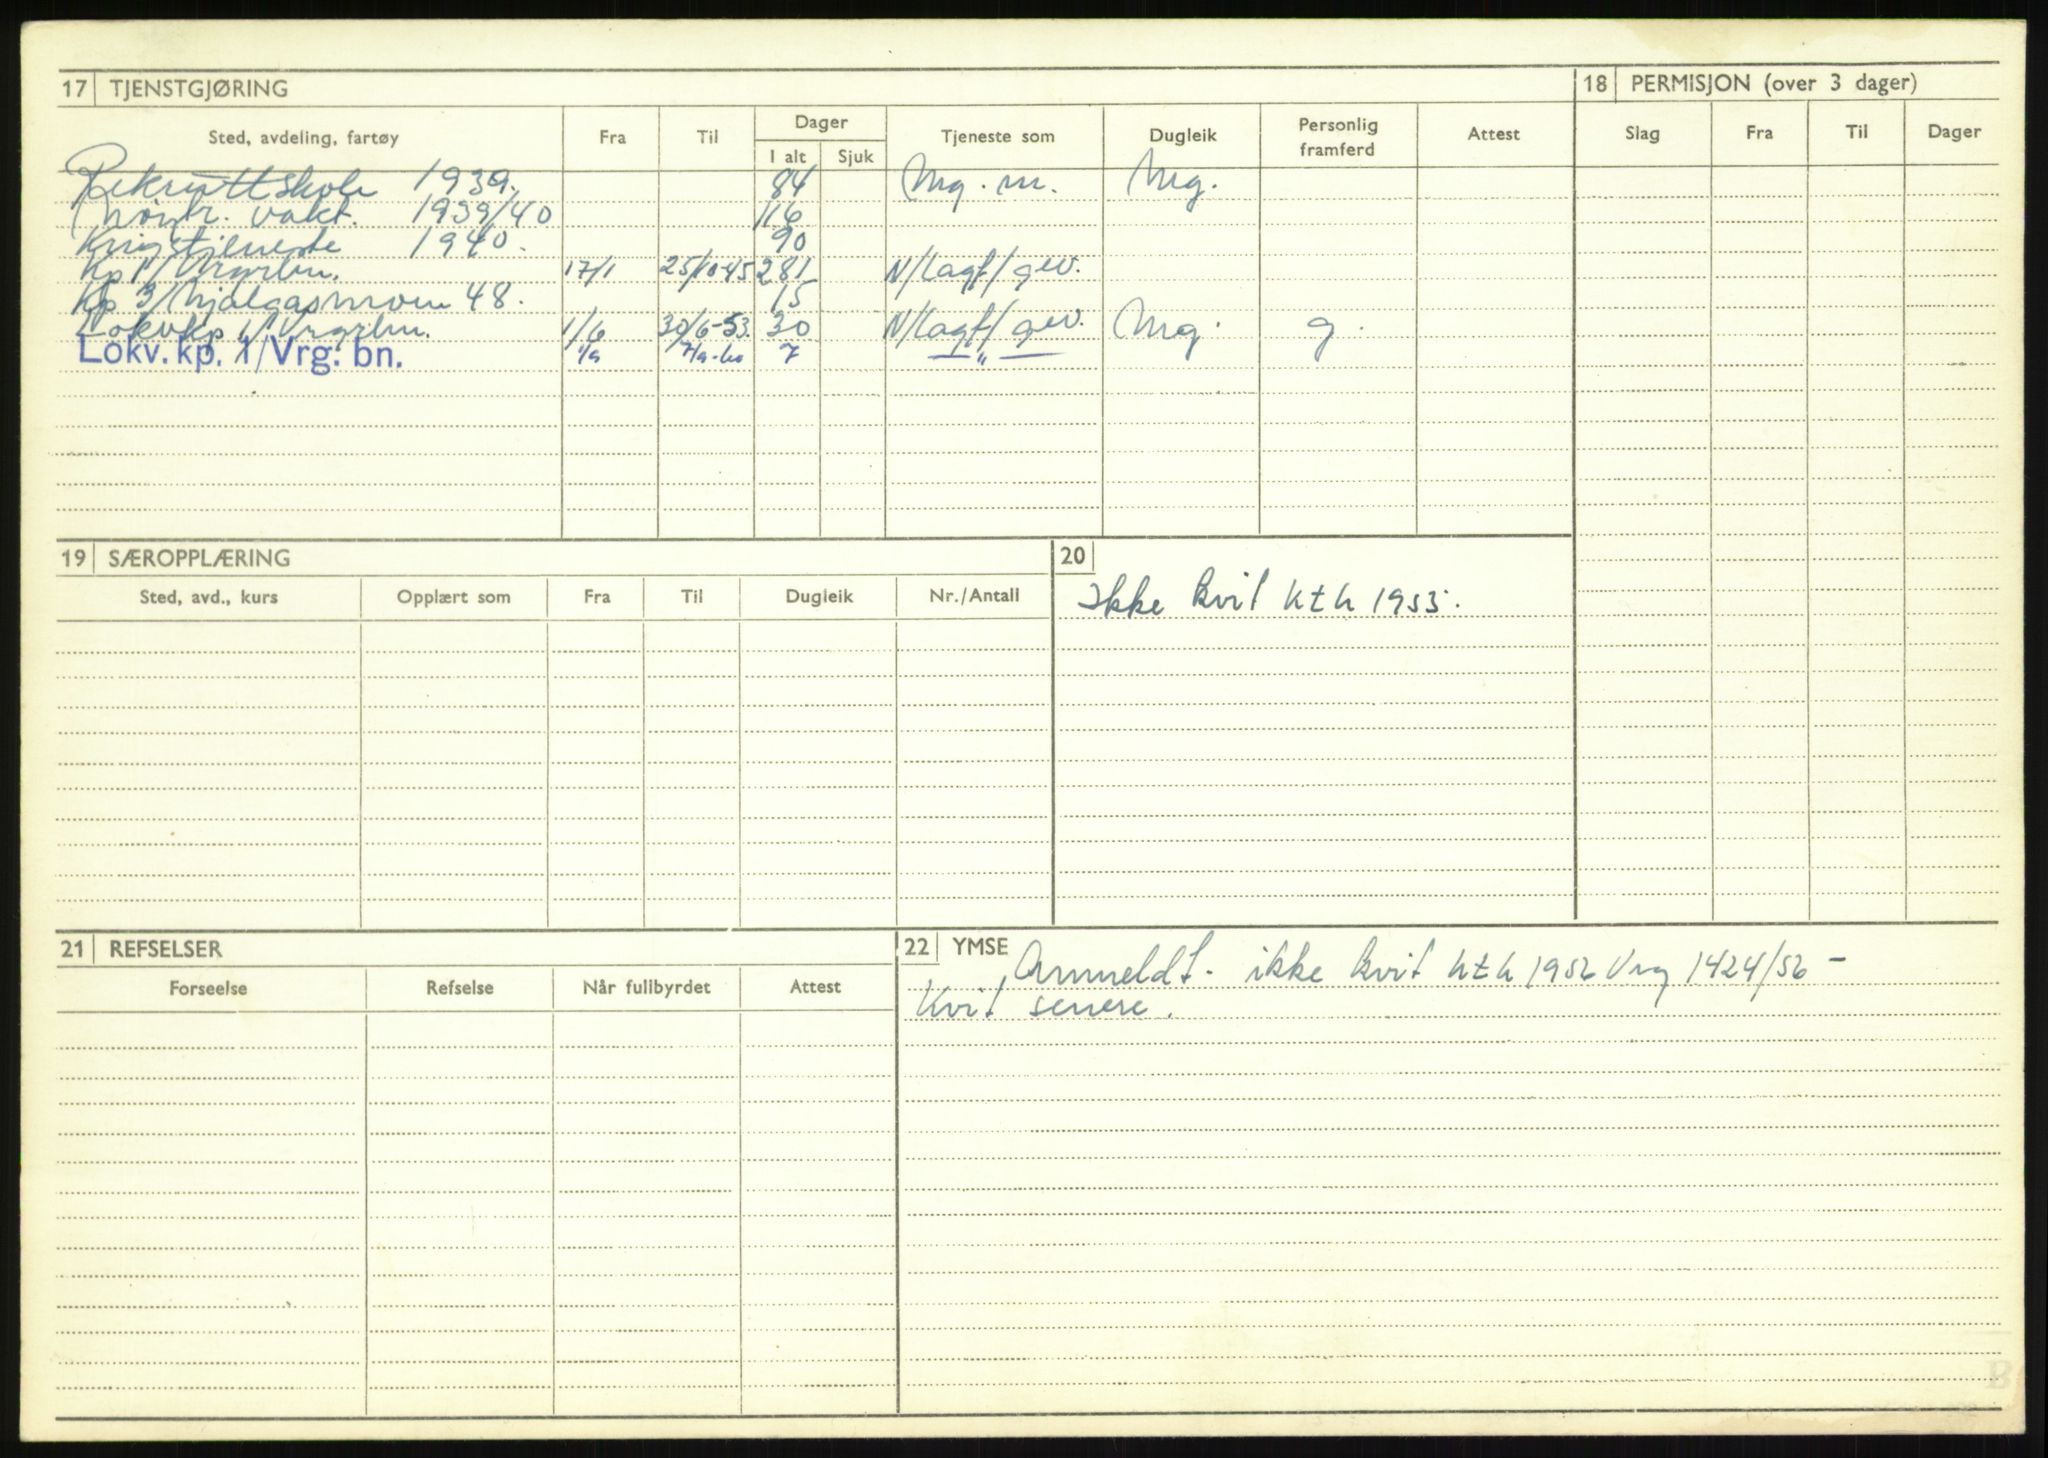 17 TJENSTGJØRING
18 PERMISJON (over 3 dager)
Sted, avdeling, fartøy Fra Til Dager Tjeneste som Dugleik Personlig framferd Attest Slag Fra Til Dager
I alt Sjuk
Rekruttskole 1939. 84 Mg. m. Mg.
Nøytr. vakt. 1939/40 116
Krigstjeneste 1940. 90
Kp 1/Vrgrbn. 17/1 25/10-45 281 N/Lagf/gev.
Kp 3/ 48. 15
Lokvkp 1/Vrgrbn. 1/6 30/6-53. 30 N/Lagf/gev. Mg. g.
Lokv. kp. 1/Vrg. bn. 1/9 7/9-60 7 — " —
19 SÆROPPLÆRING
20
Sted, avd., kurs Opplært som Fra Til Dugleik Nr./Antall
Ikke kvit h t h 1955.
21 REFSELSER
22 YMSE
Forseelse Refselse Når fullbyrdet Attest
Anmeldt. ikke kvit h t h 1956 Vrg 1424/56 –
Kvit senere.
B